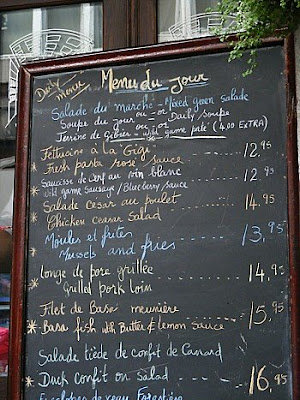 Daily Menu
Menu du Jour
Salade du marché - Mixed green salade
Soupe du jour - ou - or Daily Soupe
ou - or
Terrine de Gibier - wild game paté (4.00 EXTRA)
Fettucino à la "Gigi" 12,95
* Fresh pasta rosé sauce
Saucisse de cerf au vin blanc
* Wild game Sausage / Blueberry Sauce 12,95
Salade césar au poulet 14,95
* Chicken ceasar Salad
Moules et frites 13,95
* Mussels and fries
Longe de porc grillée 14,95
* Grilled pork loin
Filet de Basa meunière 15,95
* Basa fish with Butter & lemon sauce
Salade tiède de confit de Canard
* Duck confit on Salad 16,95
Escalopes de veau Forestière